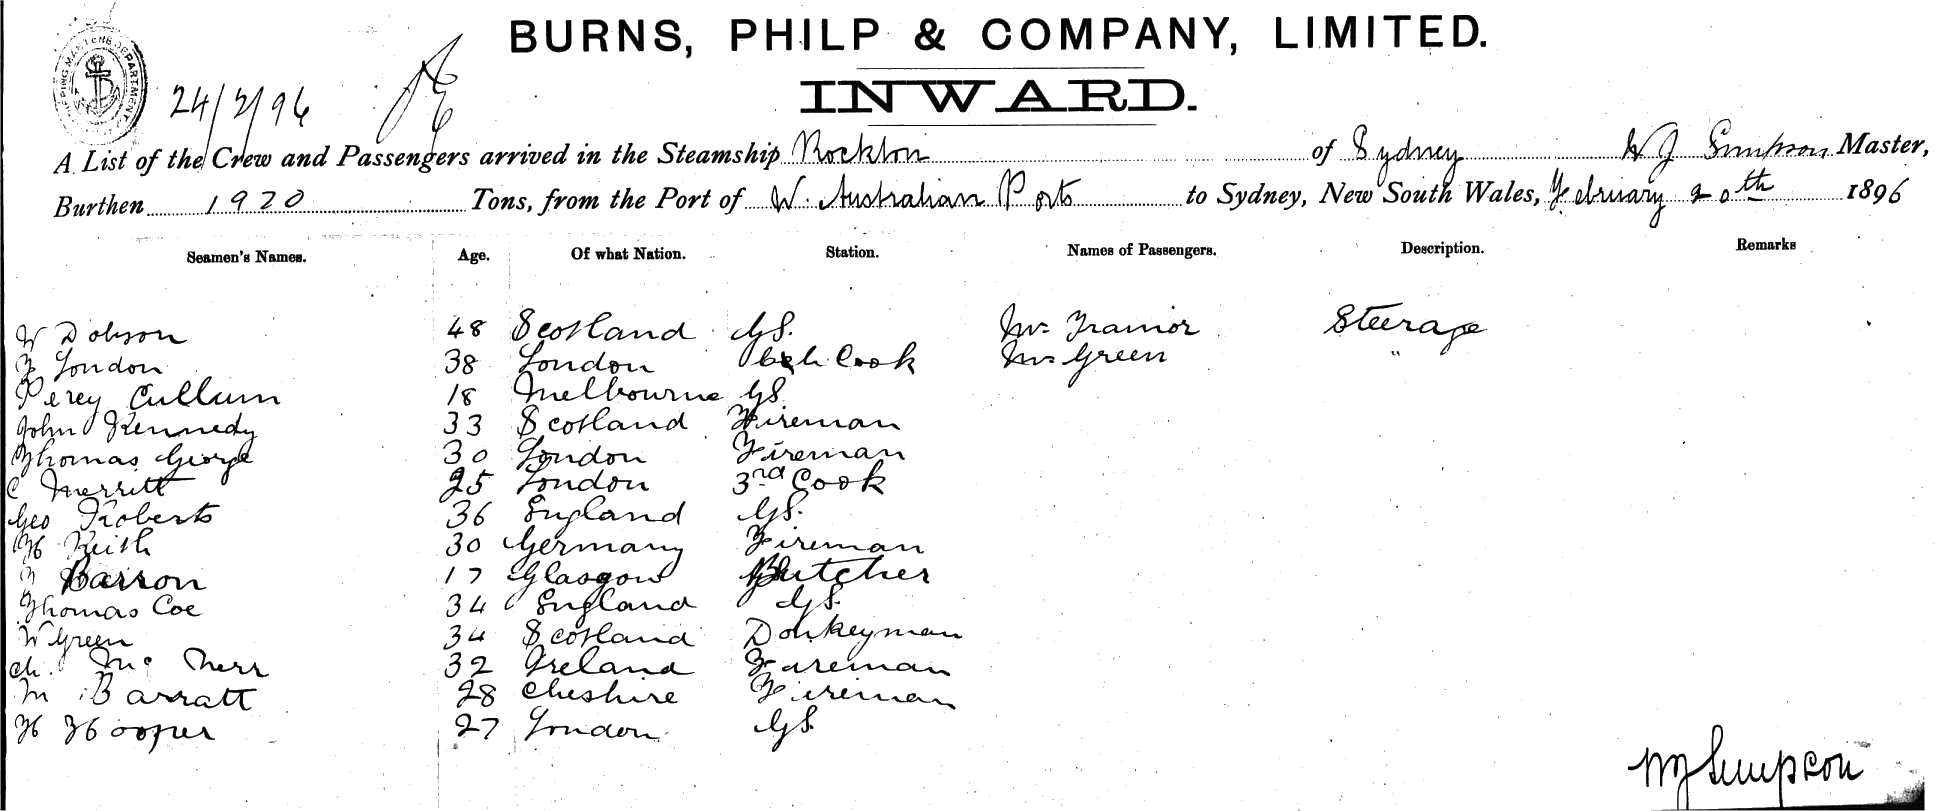 BURNS, PHILP & COMPANY, LIMITED.
INWARD.
SHIPPING MASTERS DEPARTMENT
24/2/96
A List of the Crew and Passengers arrived in the Steamship Rockton of Sydney W J Simpson Master,
Burthen 1970 Tons, from the Port of W. Australian Ports to Sydney, New South Wales, February 20th 1896
Seamen's Names. Age. Of what Nation. Station. Names of Passengers. Description. Remarks
W Dobson 48 Scotland GS. Mr Trainor Steerage
F London 38 London Cook Mr Green "
Percy Cullum 18 Melbourne GS
John Kennedy 33 Scotland Fireman
Thomas George 30 London Fireman
C Merritt 25 London 3rd Cook
Geo Roberts 36 England GS.
H Keith 30 Germany Fireman
Barron 17 Glasgow Butcher
Thomas Coe 34 England GS.
W Green 34 Scotland Donkeyman
Ch. Mc Nerr 32 Ireland Fireman
M Barratt 28 Cheshire Fireman
H Hooper 27 London GS.
WJ Simpson